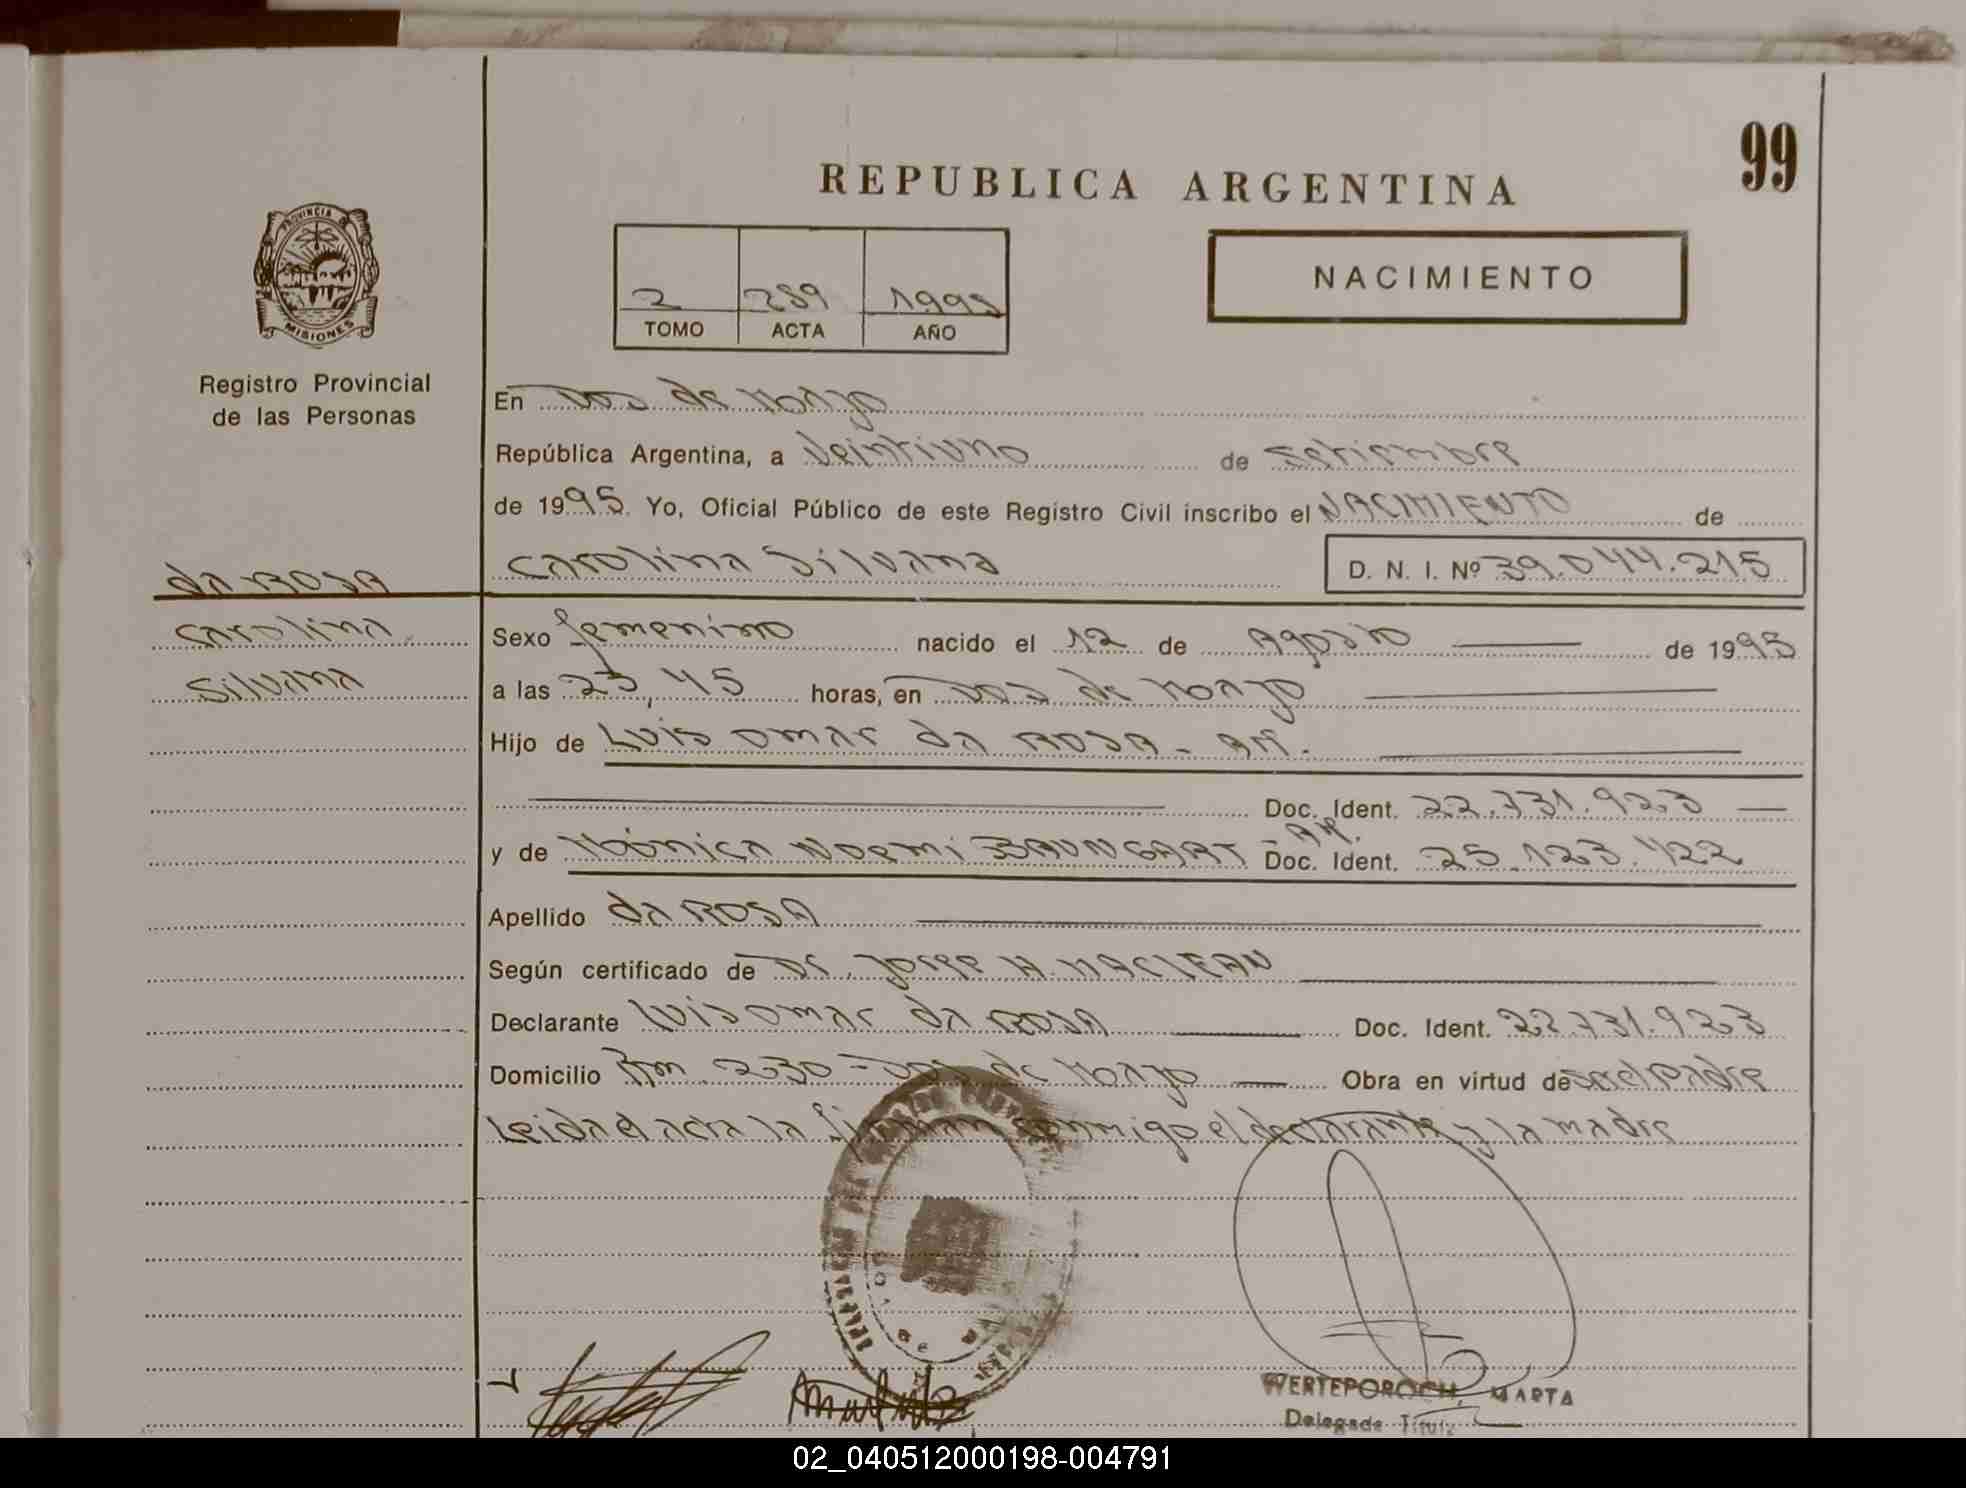 99
REPUBLICA ARGENTINA
PROVINCIA D
MISIONES
Registro Provincial
de las Personas
2 289 1995
TOMO ACTA AÑO
NACIMIENTO
En Dos de Mayo
República Argentina, a Veintiuno de Setiembre
de 1995. Yo, Oficial Público de este Registro Civil inscribo el NACIMIENTO de
Carolina Silvana D. N. I. Nº 39.044.215
da ROSA
Carolina
Silvana
Sexo femenino nacido el 12 de Agosto de 1995
a las 23,45 horas, en Dos de Mayo
Hijo de Luis Omar da ROSA - AR.
Doc. Ident. 22.731.923
y de Mónica Noemi BAUNGART - AR. Doc. Ident. 25.123.422
Apellido da ROSA
Según certificado de Dr. Jorge H. MACLEAN
Declarante Luis Omar da ROSA Doc. Ident. 22.731.923
Domicilio Km. 230 - Dos de Mayo Obra en virtud de ser el padre
Leida el acta la firman conmigo el declarante y la madre
WERTEPOROCH, MARTA
Delegada Titular
02_040512000198-004791